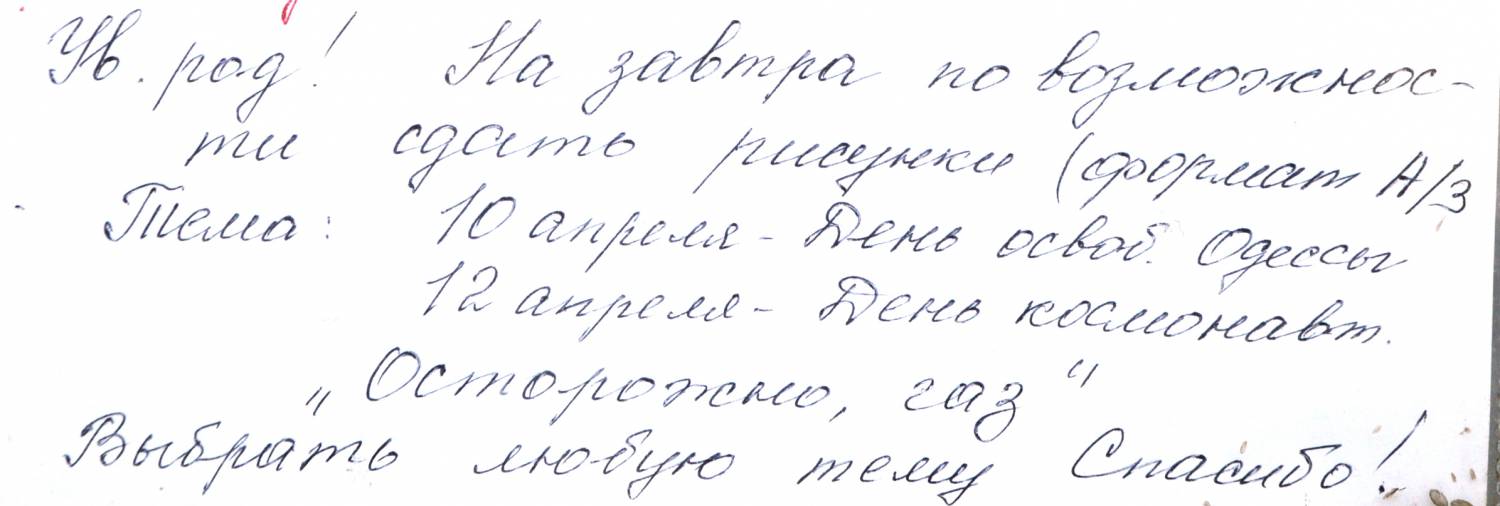 Ув. род! На завтра по возможнос-
ти сдать рисунки (формат А/3
Тема: 10 апреля - День освоб. Одессы
12 апреля - День космонавт.
„Осторожно, газ"
Выбрать любую тему Спасибо!